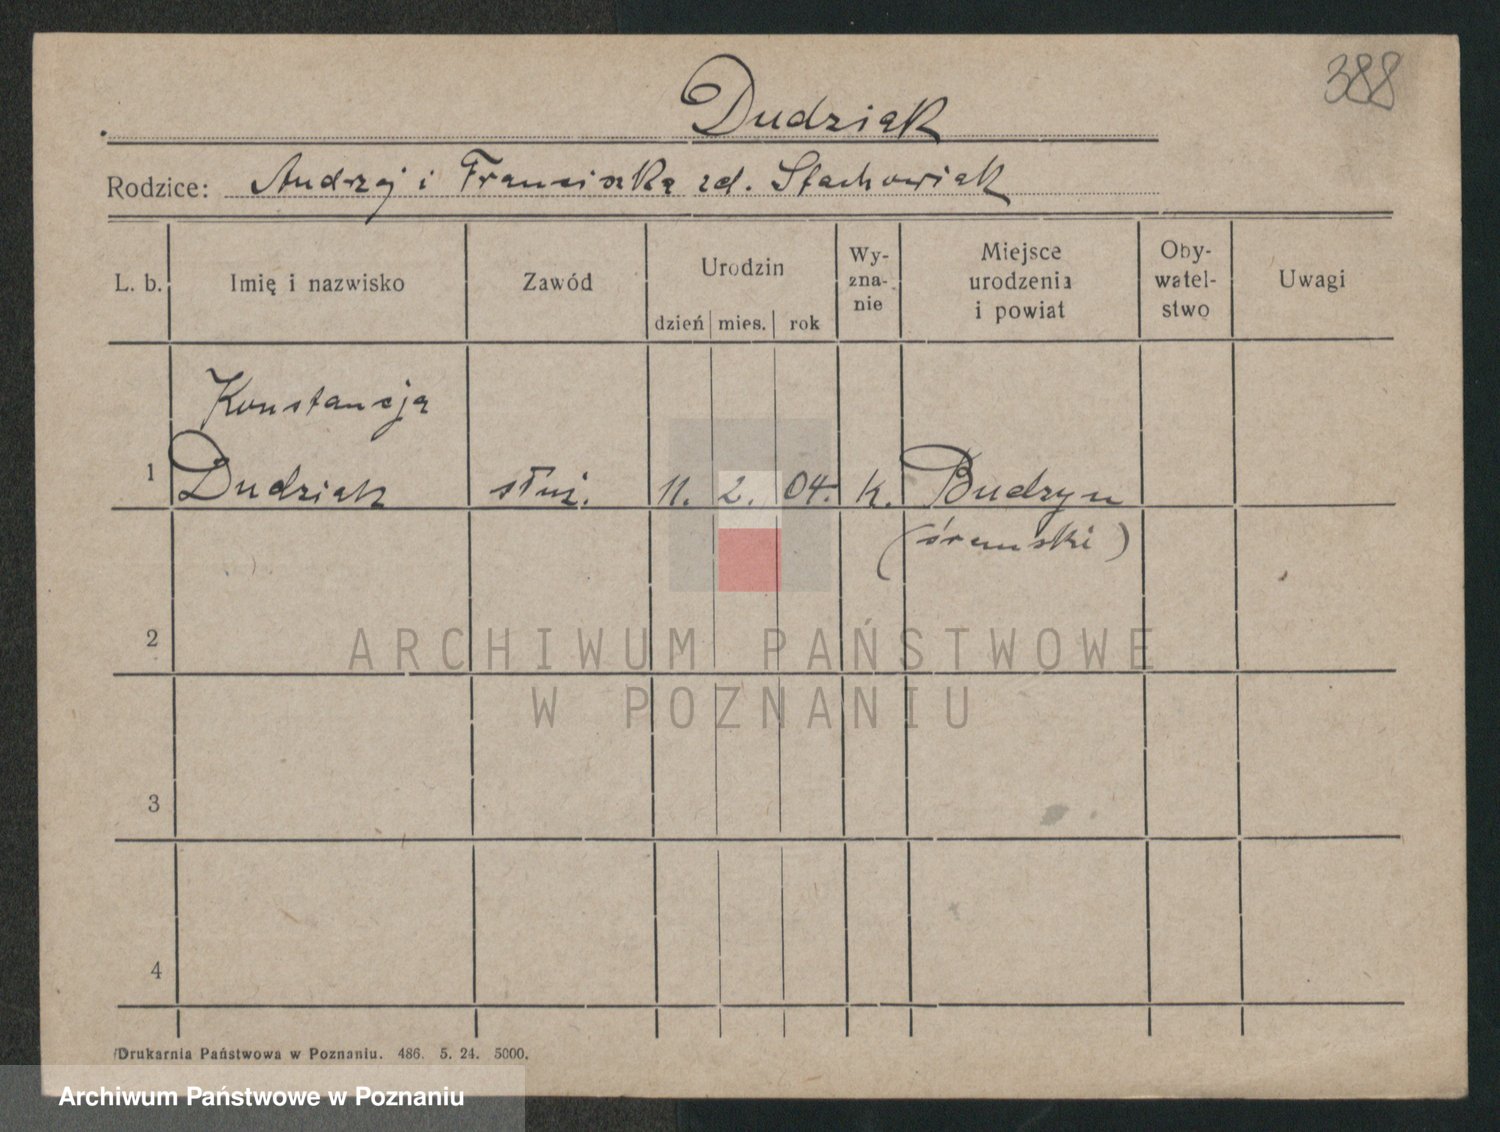 388
Dudziak
Rodzice: Andrzej i Franciszka zd. Stachowiak
L. b. Imię i nazwisko Zawód Urodzin dzień mies. rok Wy-zna-nie Miejsce urodzenia i powiat Oby-watel-stwo Uwagi
Konstancja
1 Dudziak służ. 11. 2. 04. k. Budzyn
(śremski)
2
ARCHIWUM PAŃSTWOWE
W POZNANIU
3
4
Drukarnia Państwowa w Poznaniu. 486. 5. 24. 5000.
Archiwum Państwowe w Poznaniu